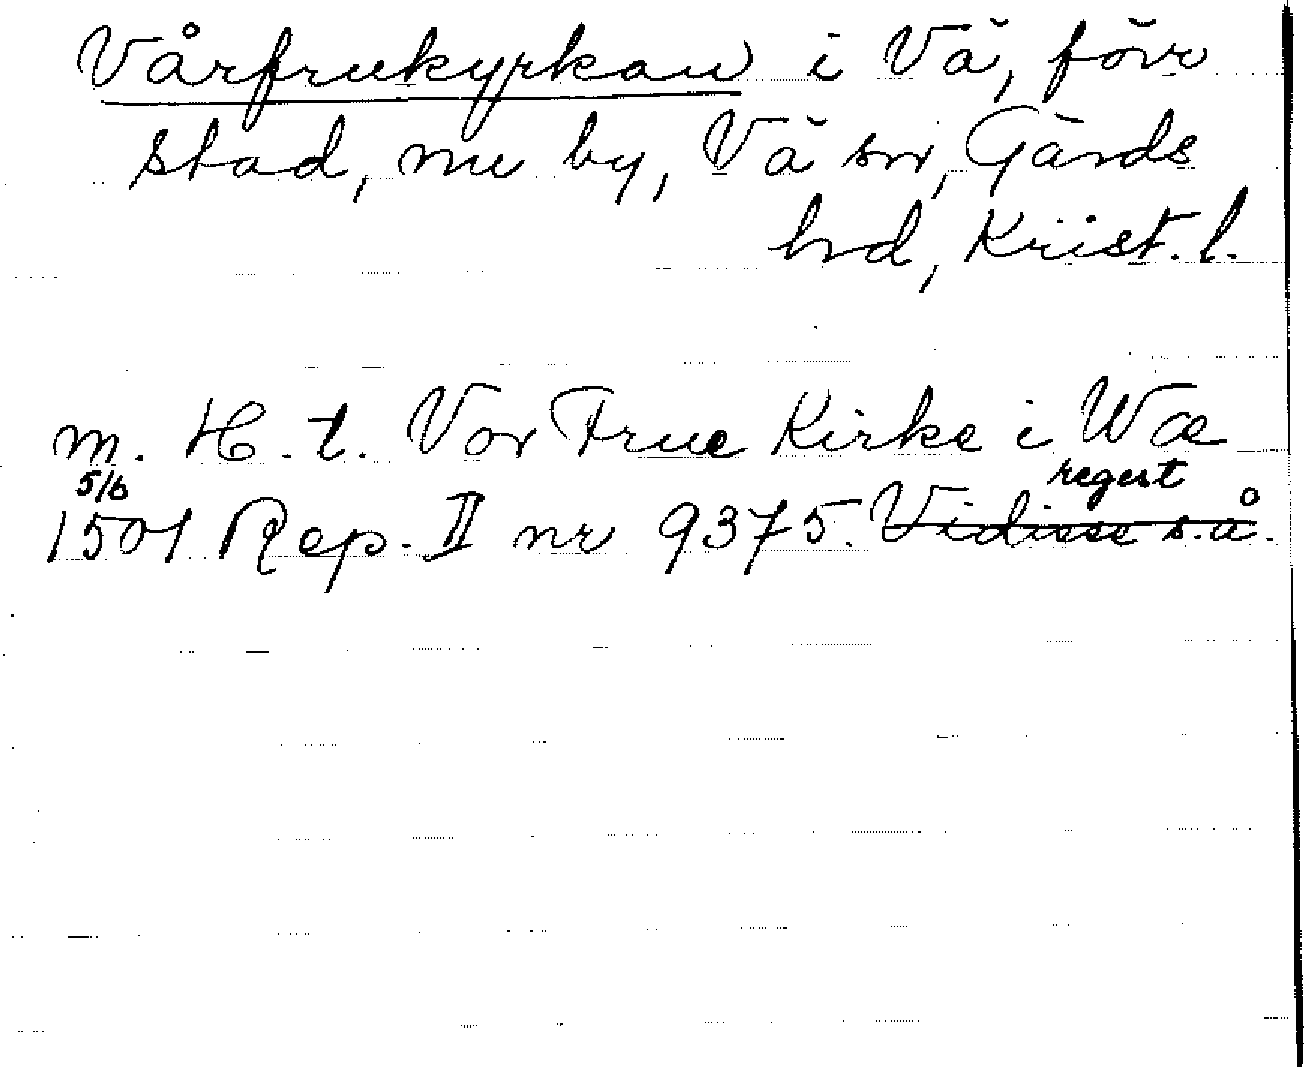 Vårfrukyrkan i Vä, förr
stad, nu by, Vä sn, Gärds
hd, Krist. l.
m. H. t. Vor Frue Kirke i Wæ
5/6 regest
1501 Rep. II nr 9375. Vidisse s.å.